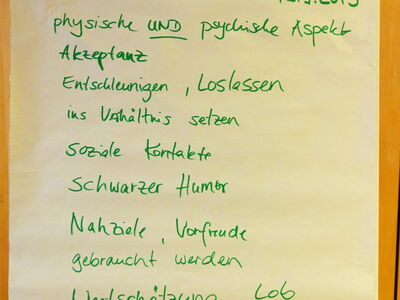 physische UND psychische Aspekt
Akzeptanz
Entschleunigen, Loslassen
ins Verhältnis setzen
soziale Kontakte
schwarzer Humor
Nahziele, Vorfreude
gebraucht werden
Wertschätzung Lob